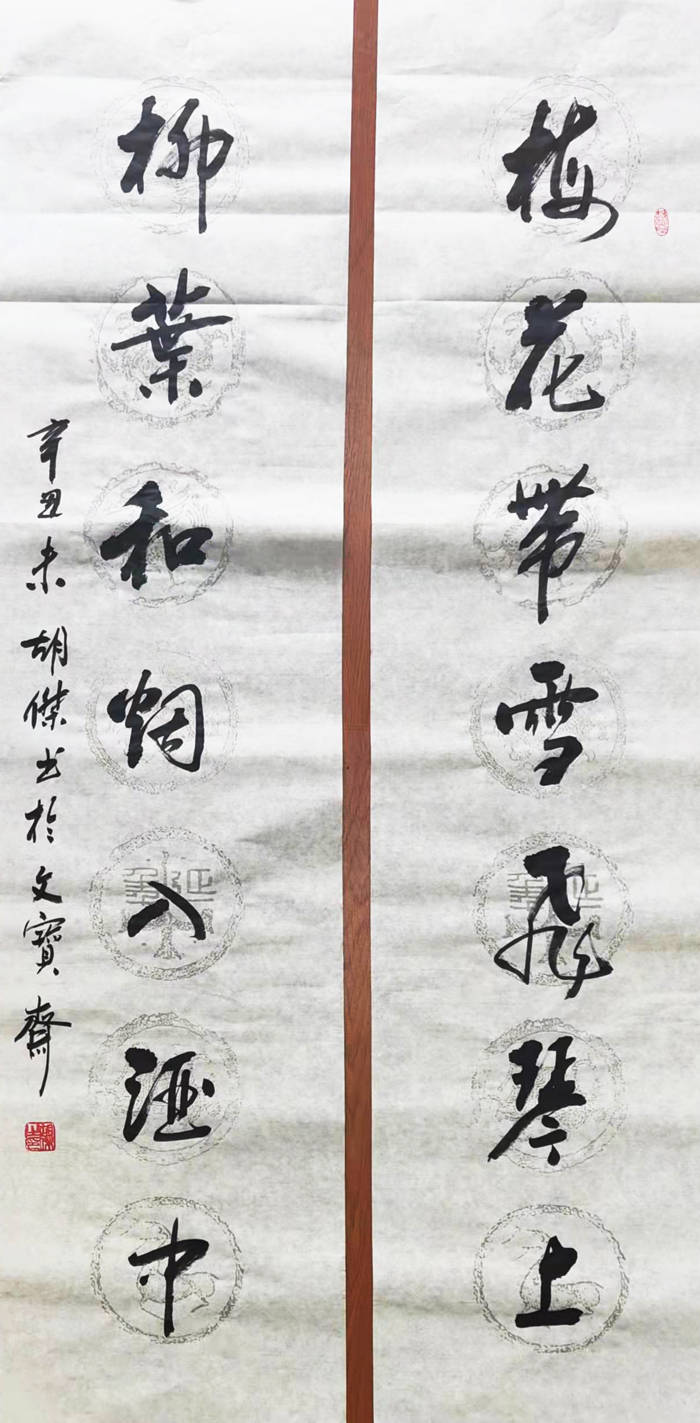 梅花帶雪飛琴上
柳葉和烟入酒中
辛丑末胡傑书於文寶齋